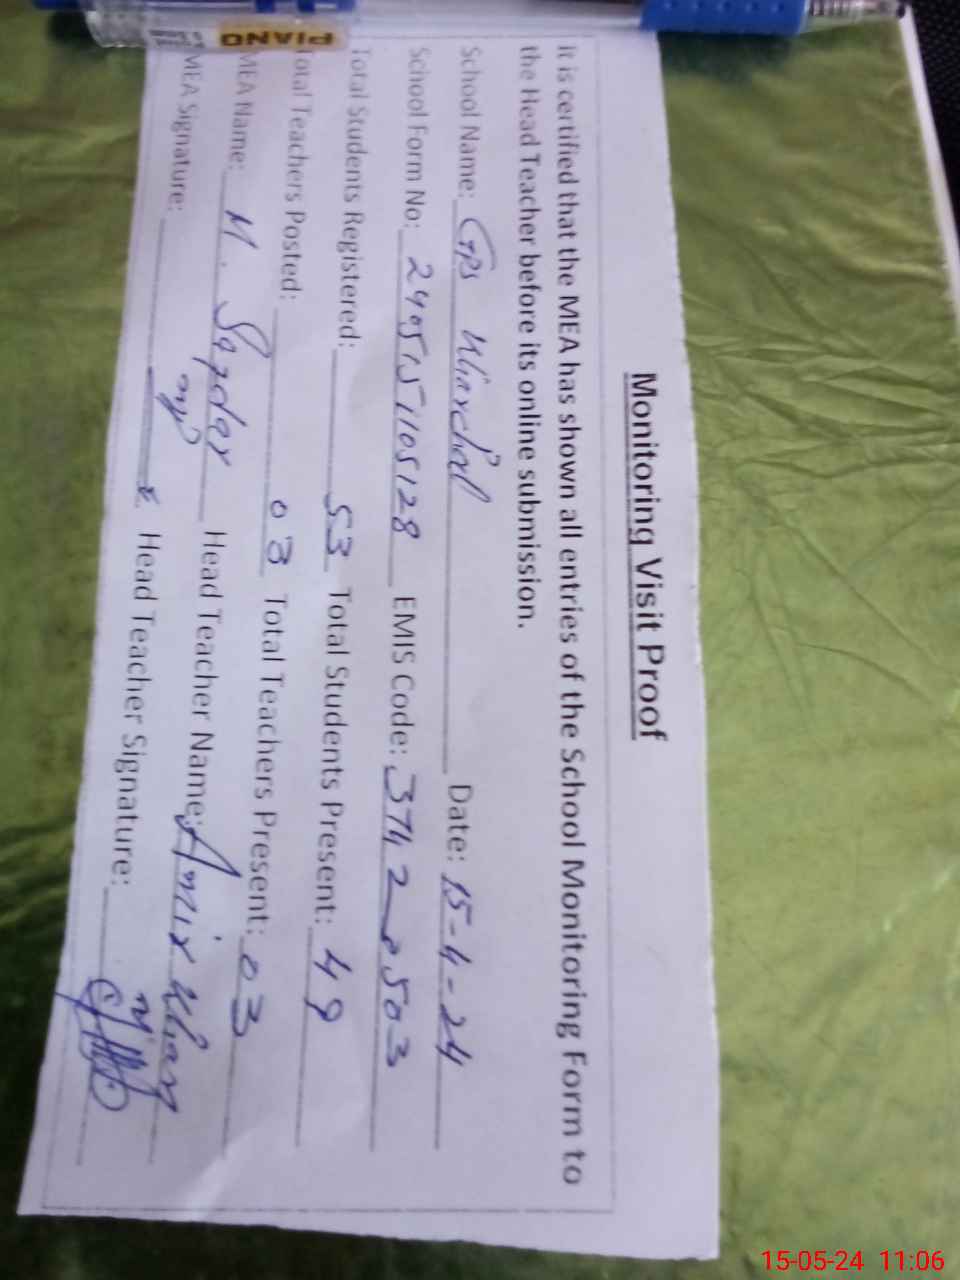 Monitoring Visit Proof
It is certified that the MEA has shown all entries of the School Monitoring Form to
the Head Teacher before its online submission.
School Name: GPS Date: 15-4-24
School Form No: 2405151105128 EMIS Code: 37420503
Total Students Registered: 53 Total Students Present: 49
Total Teachers Posted: 03 Total Teachers Present: 03
MEA Name: M. Safdar Head Teacher Name: Amir Khan
MEA Signature: Head Teacher Signature:
PIANO
15-05-24 11:06